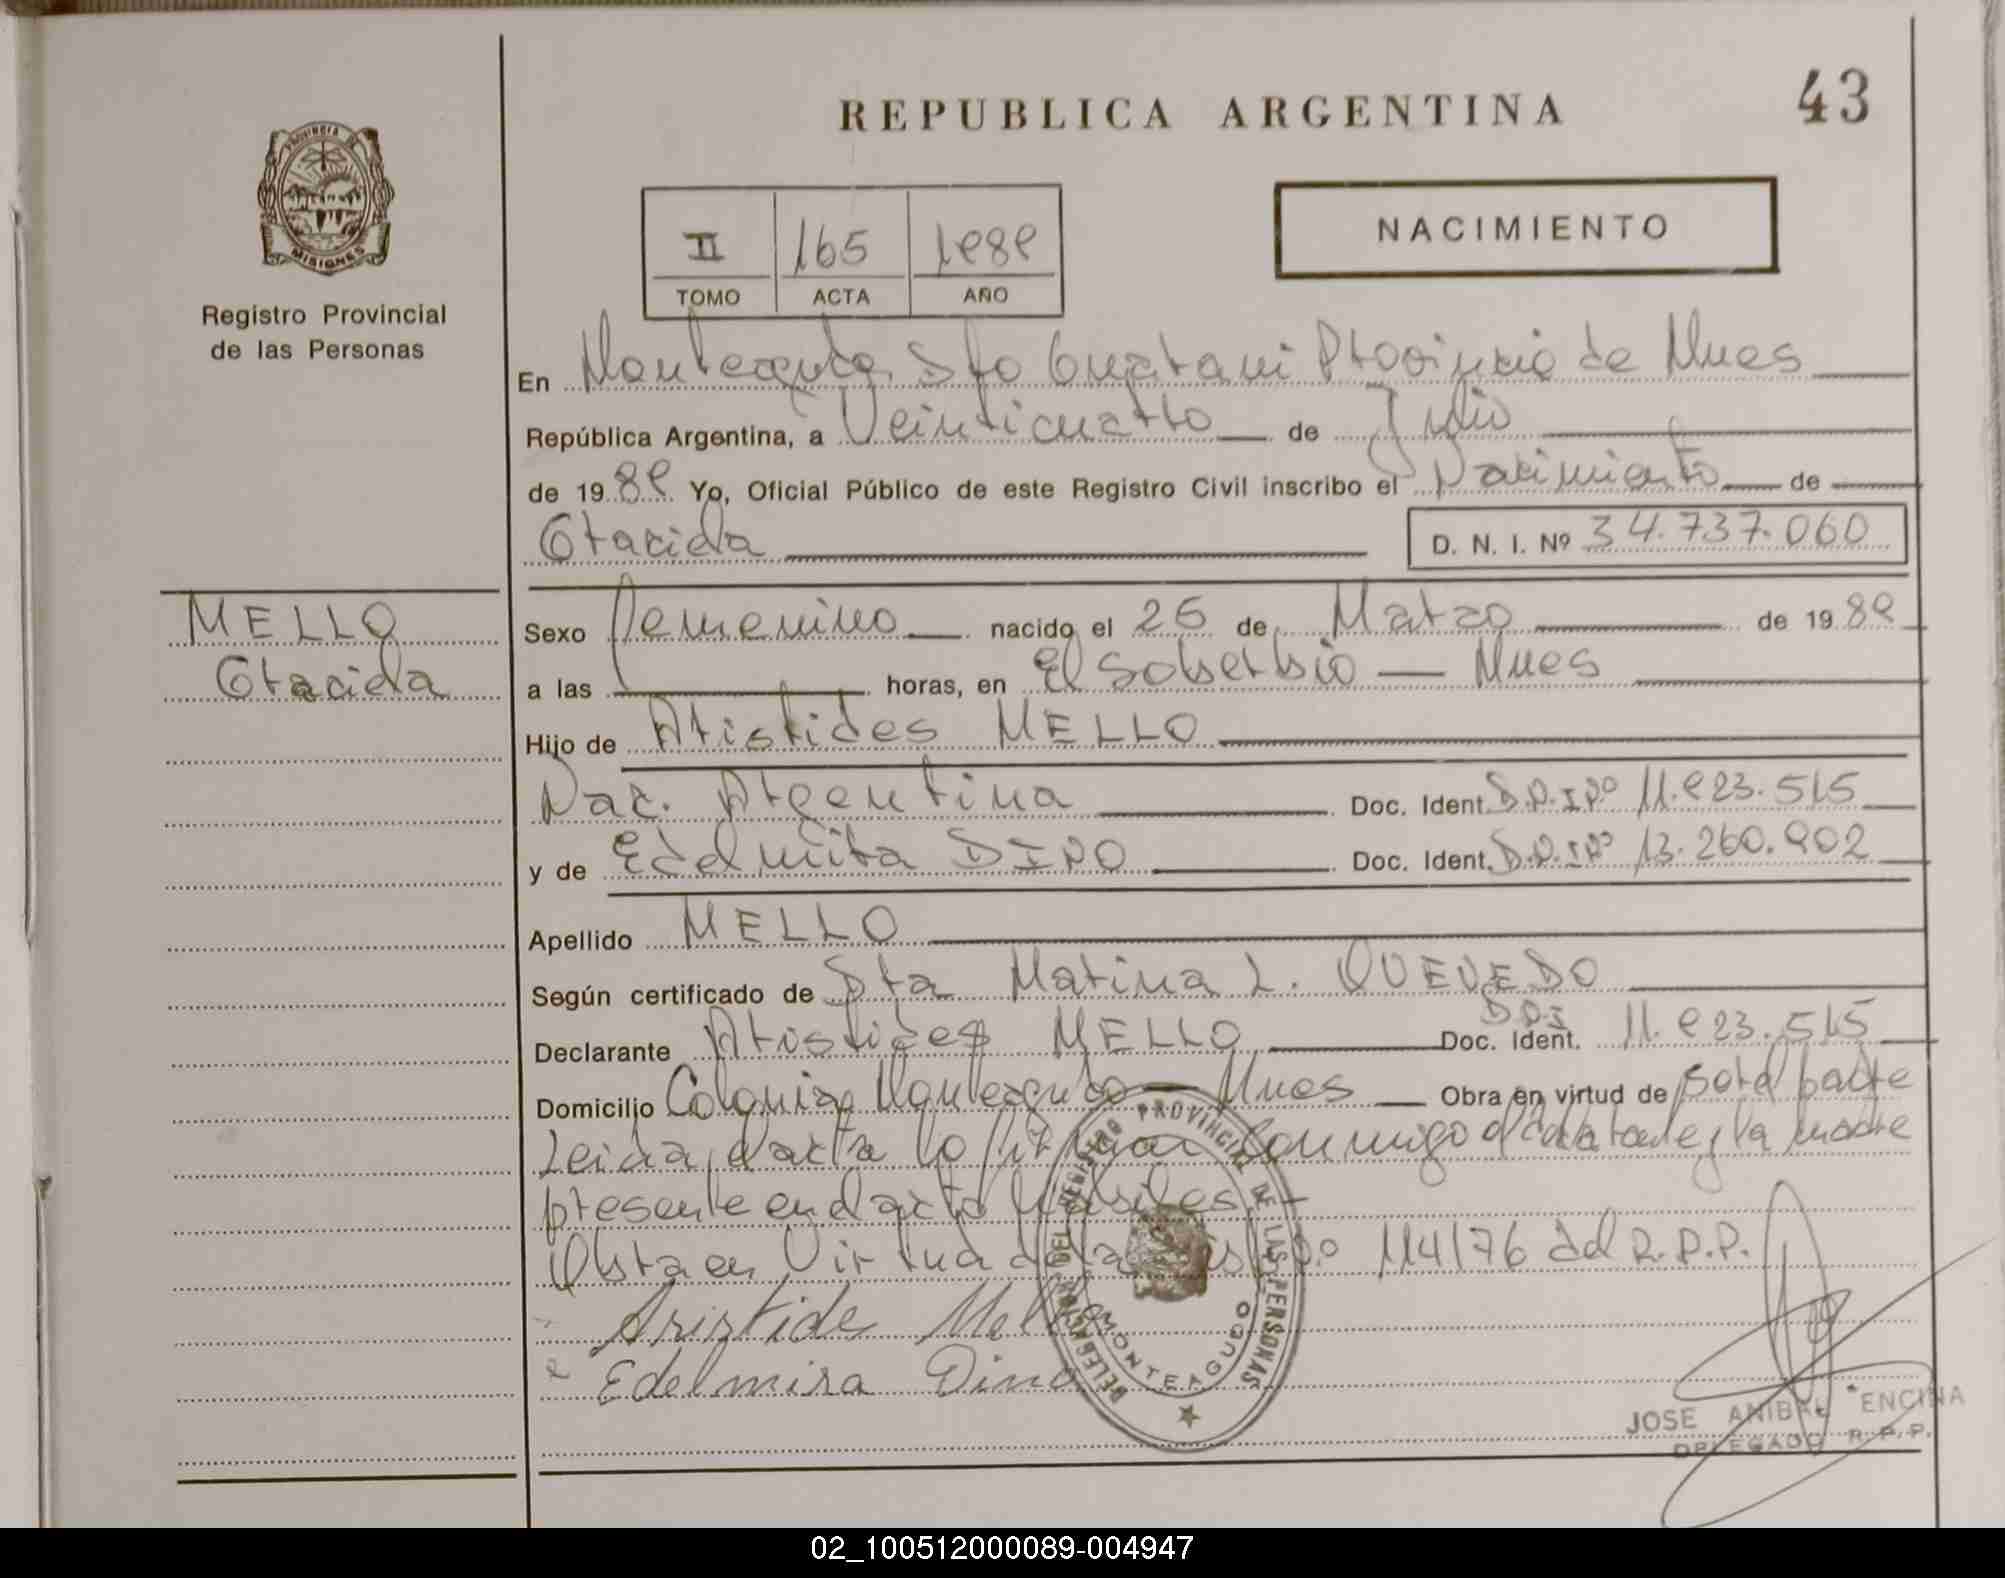 REPUBLICA ARGENTINA
43
PROVINCIA DE
MISIONES
Registro Provincial
de las Personas
II 165 1989
TOMO ACTA AÑO
NACIMIENTO
En Monteagudo, Dto Guarani Provincia de Mnes
República Argentina, a Veinticuatro de Julio
de 1989 Yo, Oficial Público de este Registro Civil inscribo el Nacimiento de
Graciela
D. N. I. Nº 34.737.060
MELLO
Graciela
Sexo Femenino nacido el 26 de Marzo de 1989
a las horas, en El Soberbio — Mnes
Hijo de Aristides MELLO
Nac. Argentina Doc. Ident. D.N.I Nº 11.923.515
y de Edelmira DINO Doc. Ident. D.N.I Nº 13.260.902
Apellido MELLO
Según certificado de Dra Marina L. QUEVEDO
Declarante Aristides MELLO Doc. Ident. DNI 11.923.515
Domicilio Colonia Monteagudo — Mnes Obra en virtud de ser el padre
Leida el acta lo firman conmigo el declarante y la madre
presente en el acto
Obra en Virtud de la Nº 114/76 del R.P.P.
Aristide Mello
Edelmira Dino
DELEGACION DEL REGISTRO PROVINCIAL DE LAS PERSONAS
MONTEAGUDO
JOSE ANIBAL ENCINA
DELEGADO R.P.P.
02_100512000089-004947